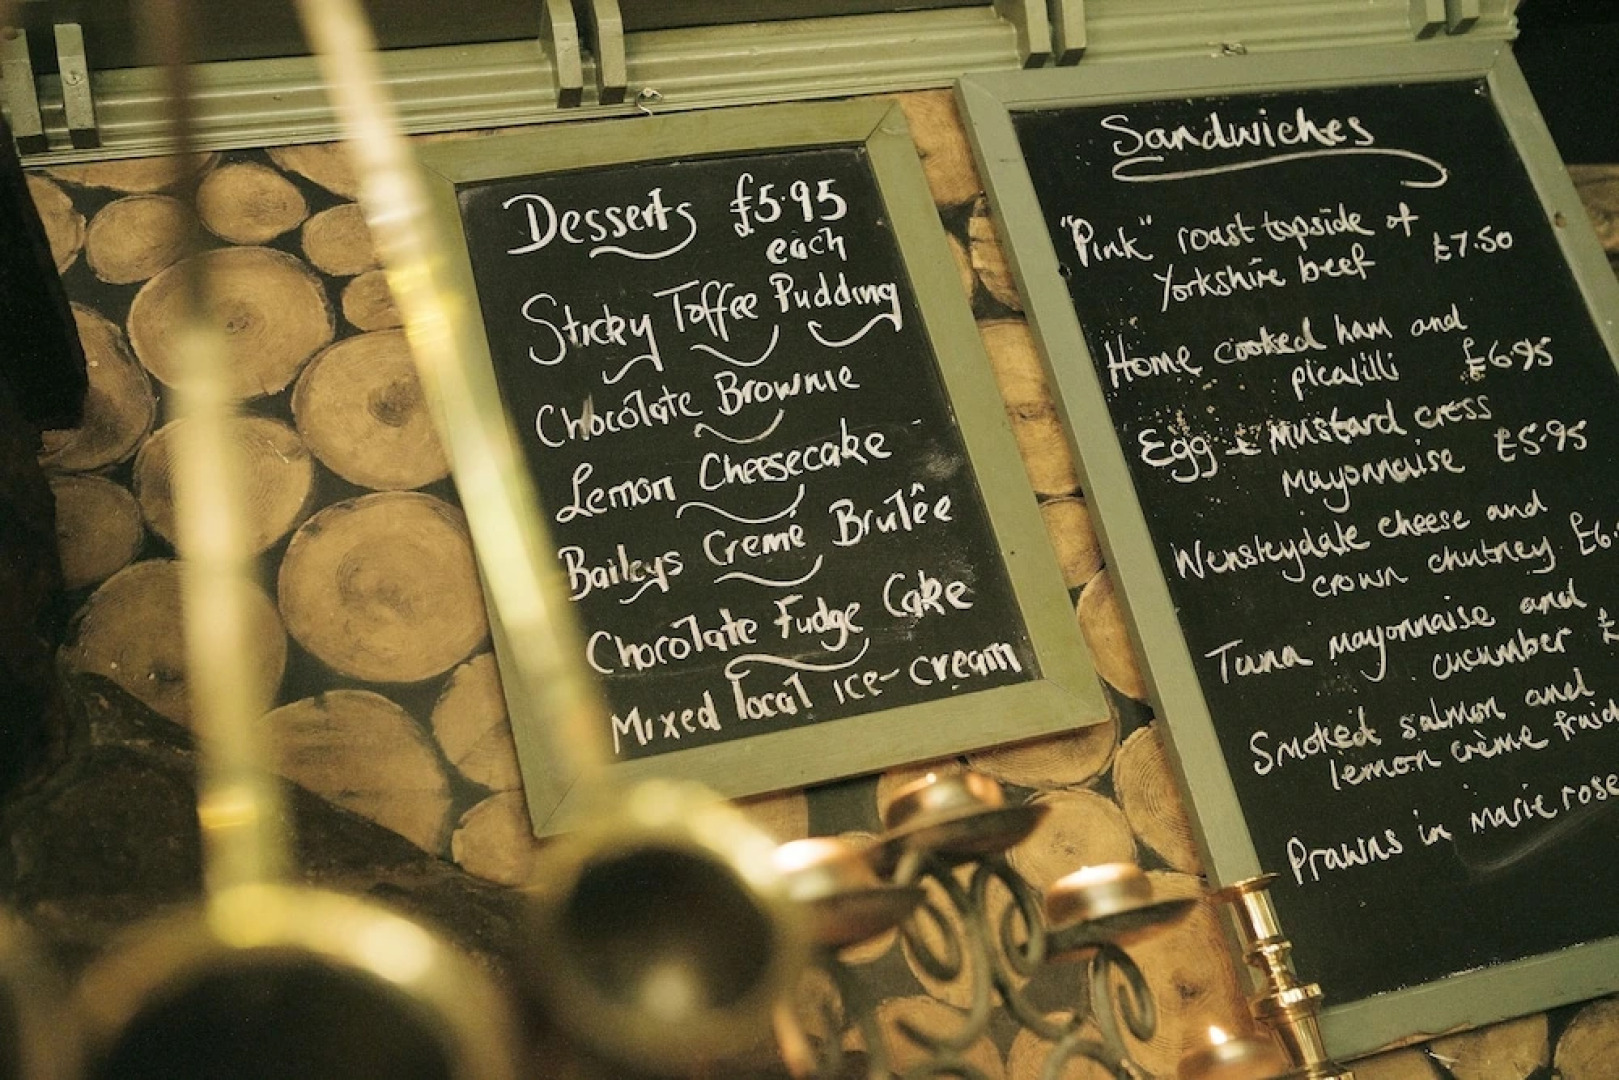 Desserts £5.95
each
Sticky Toffee Pudding
Chocolate Brownie
Lemon Cheesecake
Baileys Cremé Brulêe
Chocolate Fudge Cake
Mixed local ice-cream
Sandwiches
"Pink" roast topside of
Yorkshire beef £7.50
Home cooked ham and
picalilli £6.95
Egg + Mustard cress
Mayonnaise £5.95
Wensleydale cheese and
crown chutney £6.
Tuna mayonnaise and
cucumber £
Smoked salmon and
lemon crème fraic
Prawns in marie rose